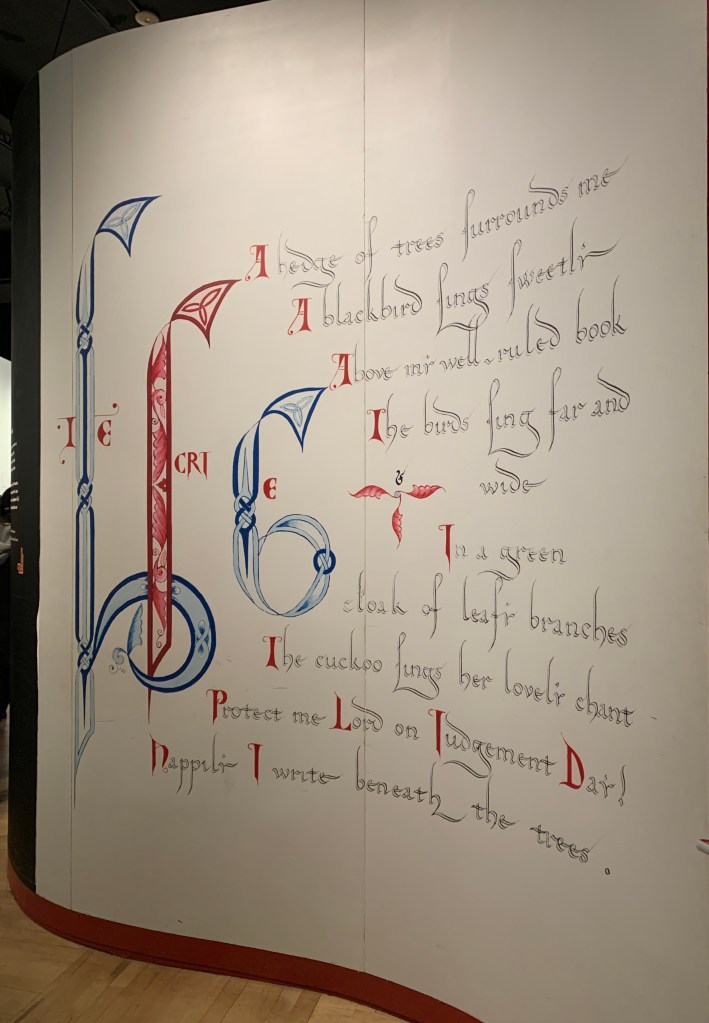 I E
CRI
E
A hedge of trees surrounds me
A blackbird sings sweetli
Above mi well-ruled book
The birds sing far and
wide
&
In a green
cloak of leafi branches
The cuckoo sings her loveli chant
Protect me Lord on Iudgement Dai!
Happili I write beneath the trees.